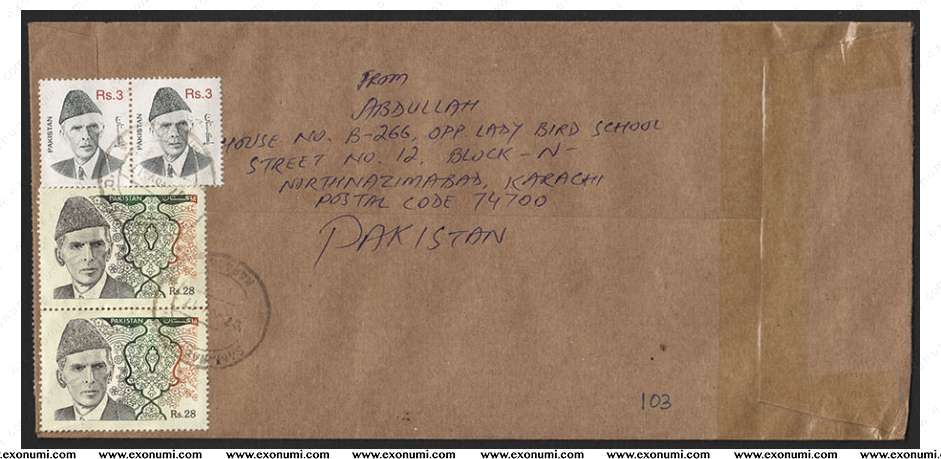 FROM
ABDULLAH
HOUSE NO. B-266, OPP. LADY BIRD SCHOOL
STREET NO. 12, BLOCK -N-
NORTHNAZIMABAD, KARACHI
POSTAL CODE 74700
PAKISTAN
Rs.3
PAKISTAN
پاکستان
Rs.3
PAKISTAN
پاکستان
PAKISTAN پاکستان
Rs.28
PAKISTAN پاکستان
Rs.28
103
www.exonumi.com www.exonumi.com www.exonumi.com www.exonumi.com www.exonumi.com www.exonumi.com www.exonumi.com